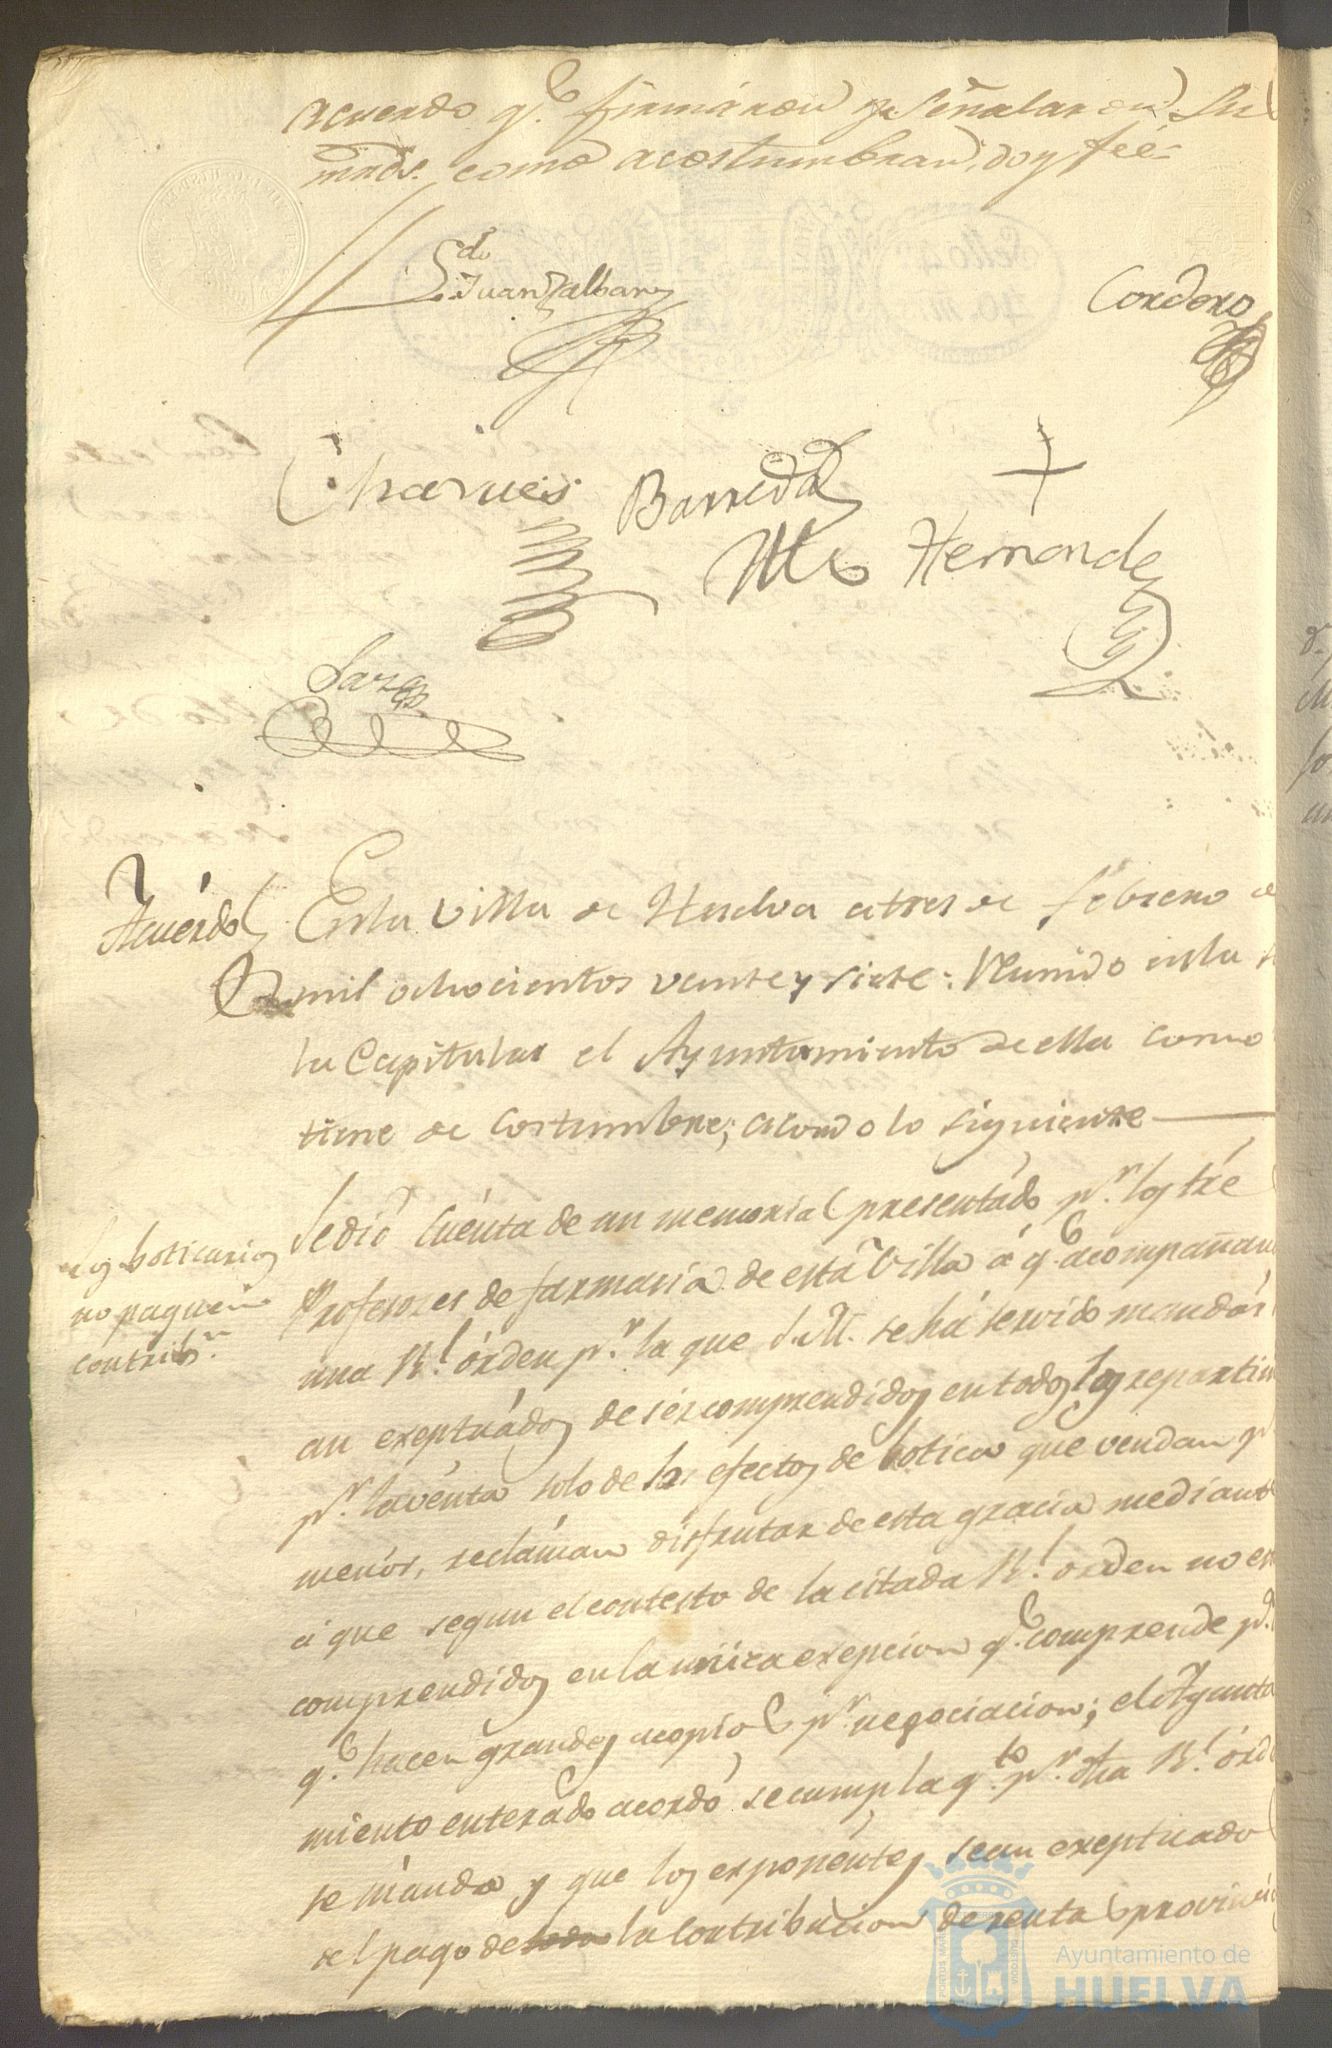 acuerdo q.e firmáron y señalaron Su
mrds. como acostumbran, doy feé.
L.do Juan Zalban
Cordero
Charues
Barreda
Hernandez
Acuérdo
En la Villa de Huelva a tres de febrero de
mil ochocientos veinte y siete: Reunido en la
la Capitular el Ayuntamiento de ella como
tiene de costumbre; acordo lo siguiente
los boticarios
no paguen
contrib.n
Se dió cuénta de un memorial presentádo p.r los tre
Profesores de farmacia de esta Villa á q.e acompañan
una R.l órden p.r la que S.M. se há servido mandár
an exeptuádos de sér comprendidos en todos los repartim
p.r la vénta solo de los efectos de botica que vendan p.r
menór, recláman disfrutar de esta gracia mediante
á que segun el contesto de la citada R.l orden no es
comprendidos en la unica exepcion q.e comprende p.a
q.e hacen grandes acopios p.r negociacion; el Ayunta
miento enterádo acordó se cumpla q.to p.r dha R.l órde
se mánda y que los exponéntes sean exeptuados
del pago de todas la contribucion de rentas provinci
Sello 4
40 m
Ayuntamiento de
HUELVA